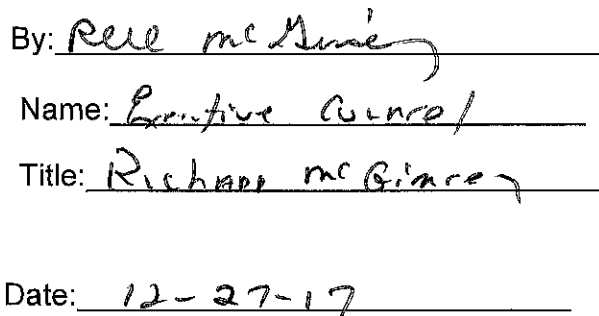 By: mc
Name: Executive Counsel
Title: Richard mc Gimsey
Date: 12-27-17